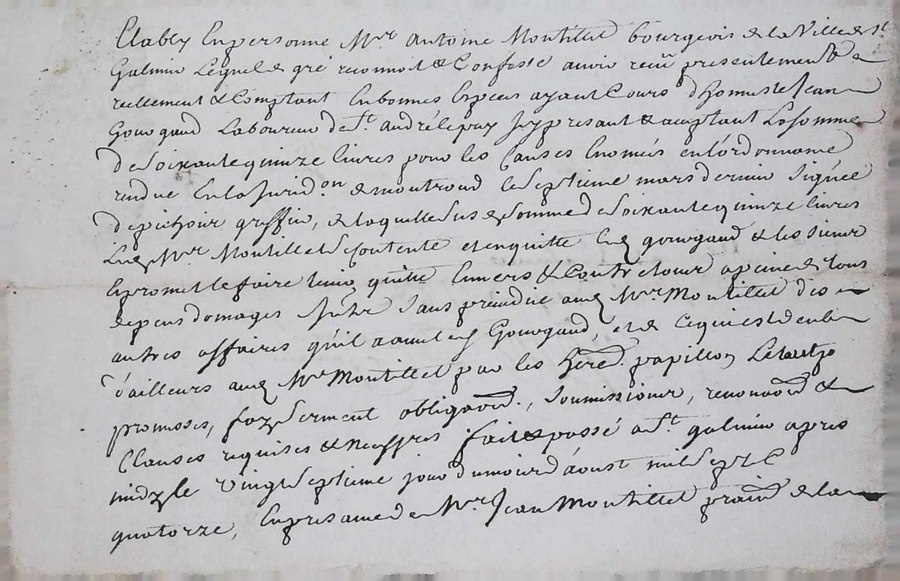 Estably En personne Mre antoine Montillet bourgeois de la Ville de St
Galmier Lequel de gré reconnoit & Confesse avoir reçu présentement &
reellement & Comptant En bonnes Espèces ayant Cours d'honneste Jean
Gourgaud Laboureur de St andré le puy Icy présant & acceptant La somme
de Soixante quinze livres pour les Causes Enoncés en l'ordonnance
rendue En la Jurid.on de montrond le septieme mars dernier signée
de pichoir greffier, de laquelle sus d somme de soixante quinze livres
Led Mre Montillet se Contente et en quitte Led gourgaud & les siens
Et promet le faire tenir quitte Envers & Contre tous a peine de tous
depens domages sans prejudice aud Mre Montillet des
autres affaires qu'il a avec led Gourgaud, et de ce qui est deub
d'ailleurs aud Mre Montillet par les hered. papillon
promesses, serment obligaons., soumissions, renonaons &
Clauses requises & fait & passé a St galmier apres
midy le vingt septieme jour du mois d'aoust mil sept C
quatorze, En presance de Mre Jean Montillet de la